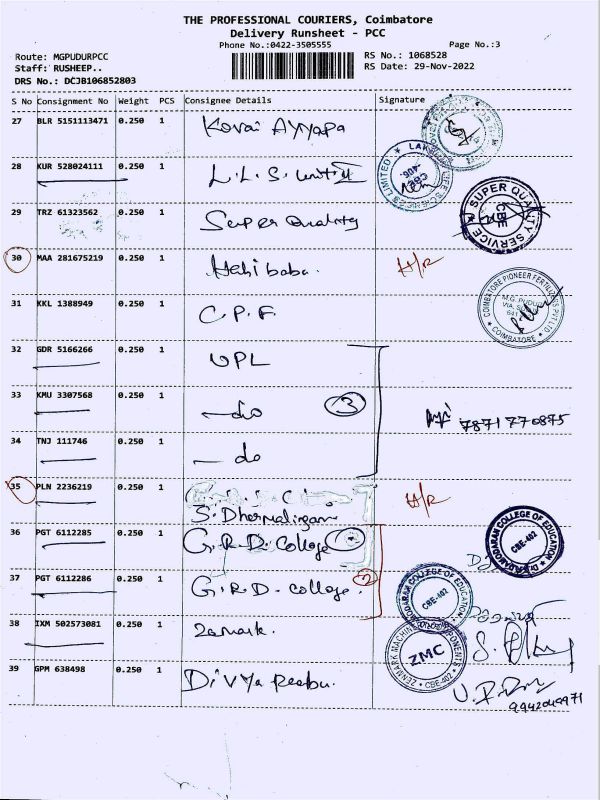 THE PROFESSIONAL COURIERS, Coimbatore
Delivery Runsheet - PCC
Phone No.:0422-3505555
Page No.:3
Route: MGPUDURPCC
Staff: RUSHEEP..
DRS No.: DCJB106852803
RS No.: 1068528
RS Date: 29-Nov-2022
S No Consignment No Weight PCS Consignee Details Signature
27 BLR 5151113471 0.250 1 Kovai Ayyapa
28 KUR 528024111 0.250 1 L.L.S. United
LIMITED
CBE
29 TRZ 61323562 0.250 1 Super Quality
SUPER QUALITY SERVICE
CBE
30 MAA 281675219 0.250 1 H/R
31 KKL 1388949 0.250 1 C.P.F.
COIMBATORE PIONEER FERTILIZERS PVT LTD
M.G. PUDUR
COIMBATORE
32 GDR 5166266 0.250 1 UPL
33 KMU 3307568 0.250 1 —do 3 7871770875
34 TNJ 111746 0.250 1 — do
35 PLN 2236219 0.250 1 S. Dharmalingam H/R
36 PGT 6112285 0.250 1 G.R.D. College
DAMODARAN COLLEGE OF EDUCATION
CBE-402
37 PGT 6112286 0.250 1 G.R.D. college. 2
DAMODARAN COLLEGE OF EDUCATION
CBE-402
38 IXM 502573081 0.250 1 Zamark.
ZENMARK MACHINE COMPONENTS
ZMC
CBE-402
39 GPM 638498 0.250 1 Divya Reebu.
9942049971